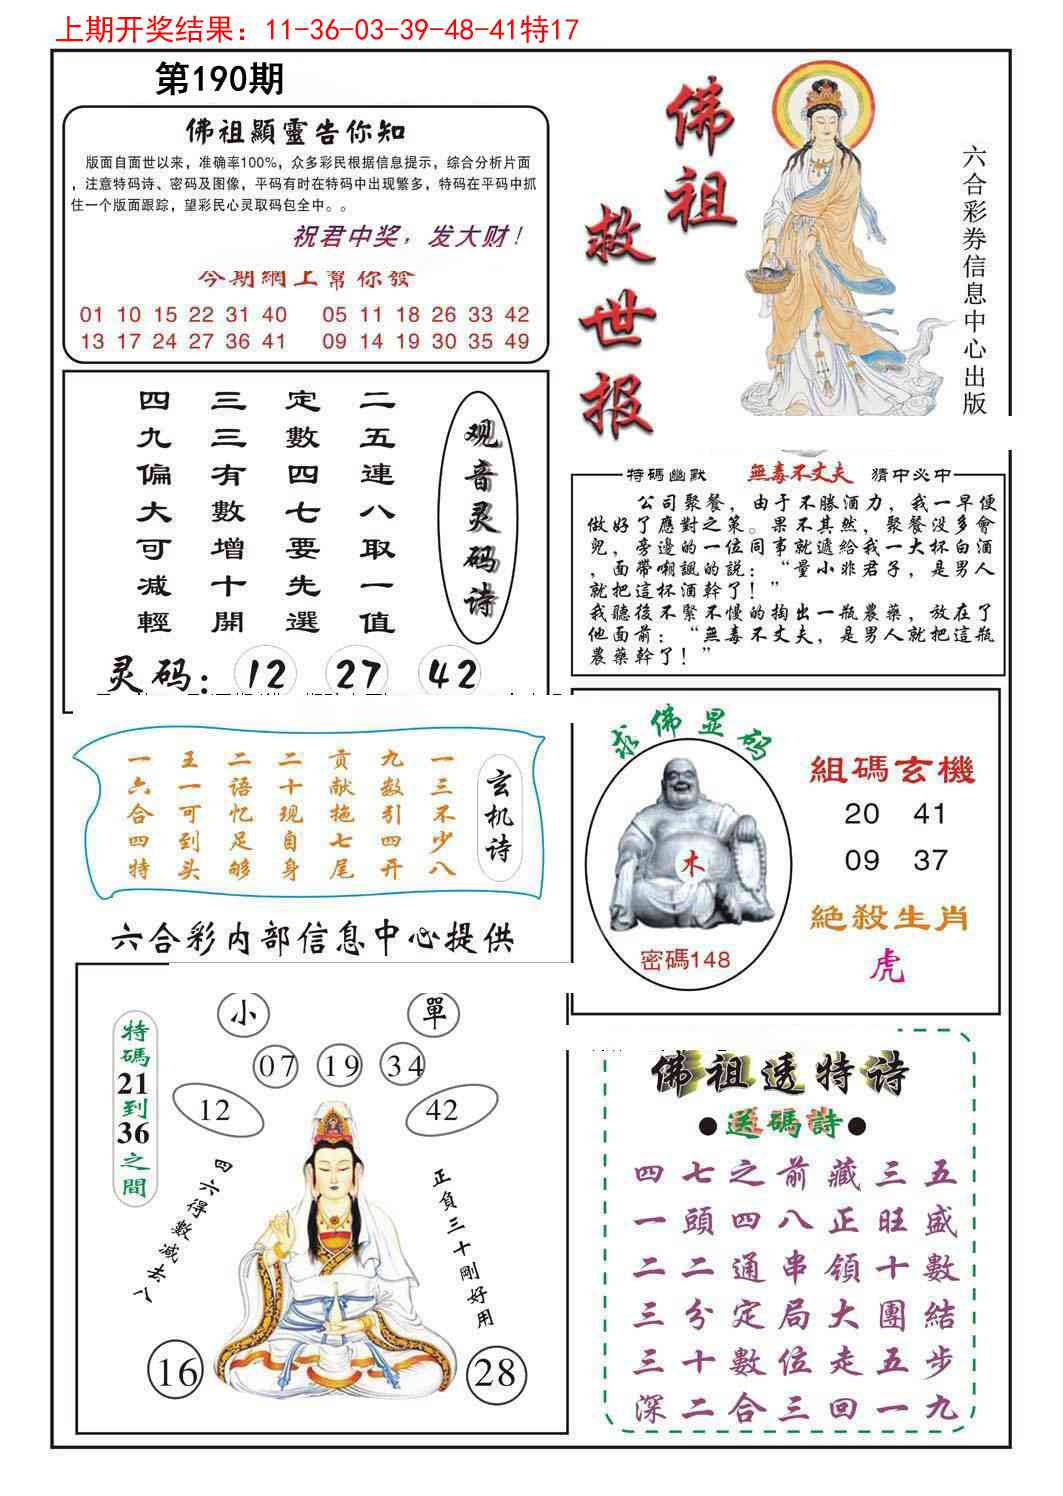 上期开奖结果：11-36-03-39-48-41特17
第190期
佛祖顯靈告你知
版面自面世以来，准确率100%，众多彩民根据信息提示，综合分析片面
，注意特码诗、密码及图像，平码有时在特码中出现繁多，特码在平码中抓
住一个版面跟踪，望彩民心灵取码包全中。。
祝君中奖，发大财！
今期網上幫你發
01 10 15 22 31 40 05 11 18 26 33 42
13 17 24 27 36 41 09 14 19 30 35 49
佛祖
救世报
六合彩券信息中心出版
观音灵码诗
二五連八取一值
定數四七要先選
三三有數增十開
四九偏大可减輕
灵码：12 27 42
特碼幽默 無毒不丈夫 猜中必中
公司聚餐，由于不勝酒力，我一早便
做好了應對之策。果不其然，聚餐没多會
兒，旁邊的一位同事就遞給我一大杯白酒
，面帶嘲諷的説：“量小非君子，是男人
就把這杯酒幹了！”
我聽後不緊不慢的掏出一瓶農藥，放在了
他面前：“無毒不丈夫，是男人就把這瓶
農藥幹了！”
玄机诗
一三不少八
九数引四开
贡献拖七尾
二十现自身
二语忆足够
王一可到头
一六合四特
求佛显码
木
密碼148
組碼玄機
20 41
09 37
絕殺生肖
虎
六合彩内部信息中心提供
特碼21到36之間
小 單
07 19 34
12 42
四六得數减去八
正負三十剛好用
16 28
佛祖透特诗
●送碼詩●
四七之前藏三五
一頭四八正旺盛
二二通串領十數
三分定局大團結
三十數位走五步
深二合三回一九